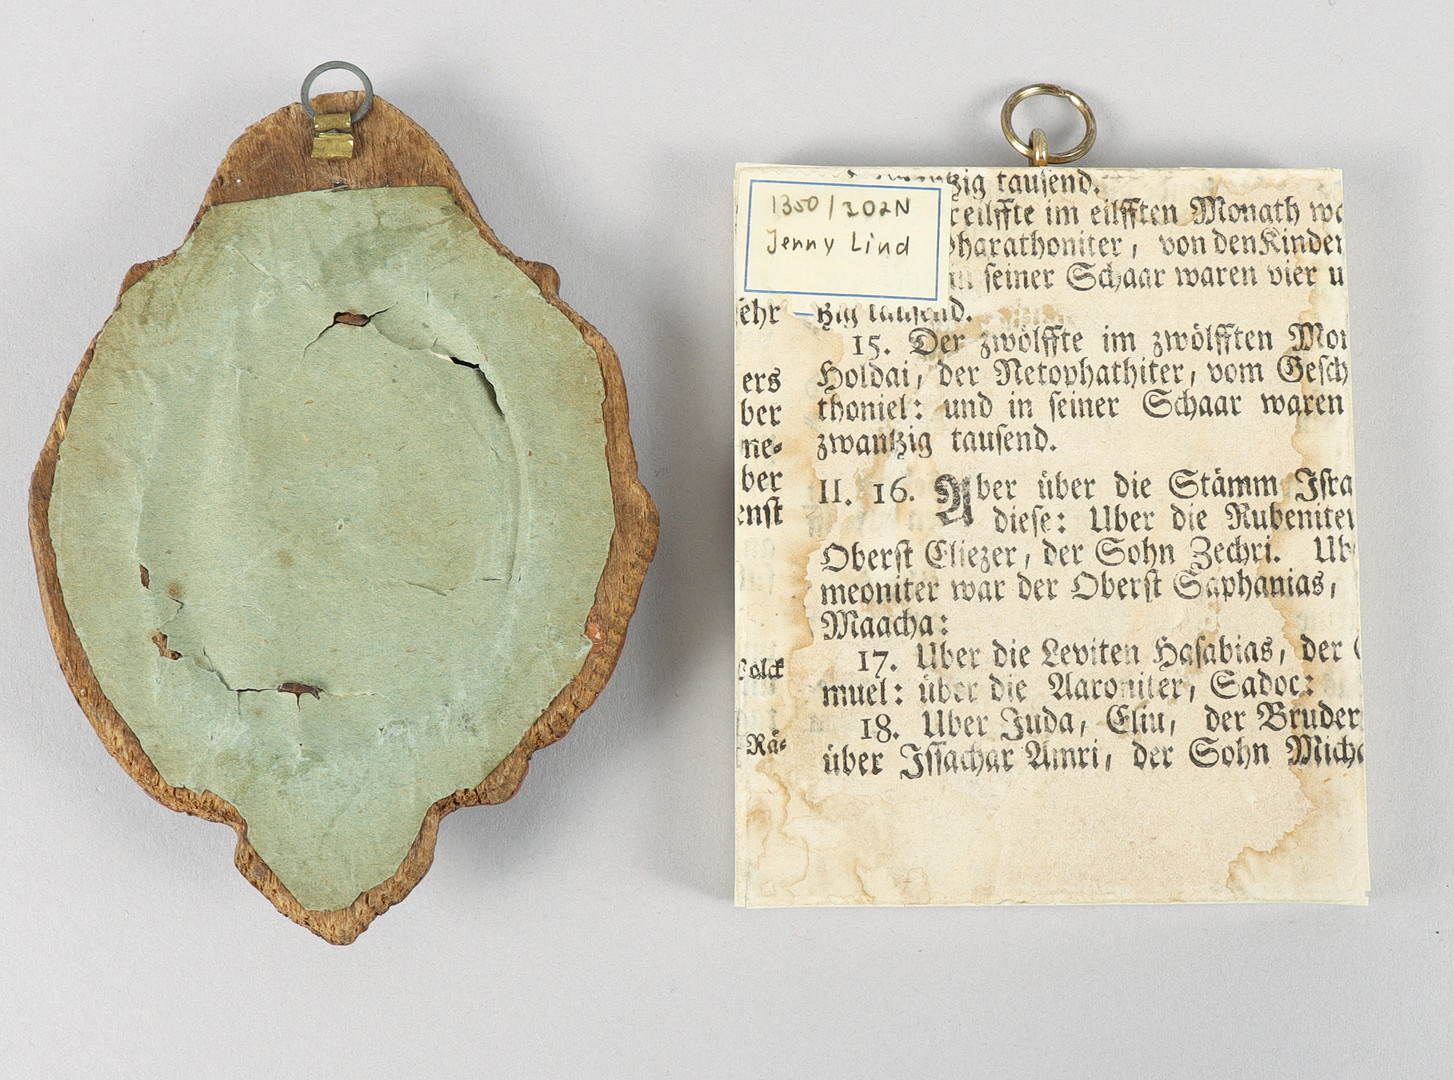 1350/202N
Jenny Lind
tzig tausend.
eilffte im eilfften Monath
pharathoniter, von den Kinder
in seiner Schaar waren vier
tzig tausend.
15. Der zwölffte im zwölfften
Holdai, der Netophathiter, vom Gesch
thoniel: und in seiner Schaar waren
zwantzig tausend.
II. 16. Aber über die Stämm Isra
diese: Uber die Rubeniter
Oberst Eliezer, der Sohn Zechri. Ub
meoniter war der Oberst Saphanias,
Maacha:
17. Uber die Leviten Hasabias, der
muel: über die Aaroniter, Sadoc:
18. Uber Juda, Eliu, der Bruder
über Issachar Amri, der Sohn Micha
ehr
ers
ber
ne-
ber
enst
olck
Rä-